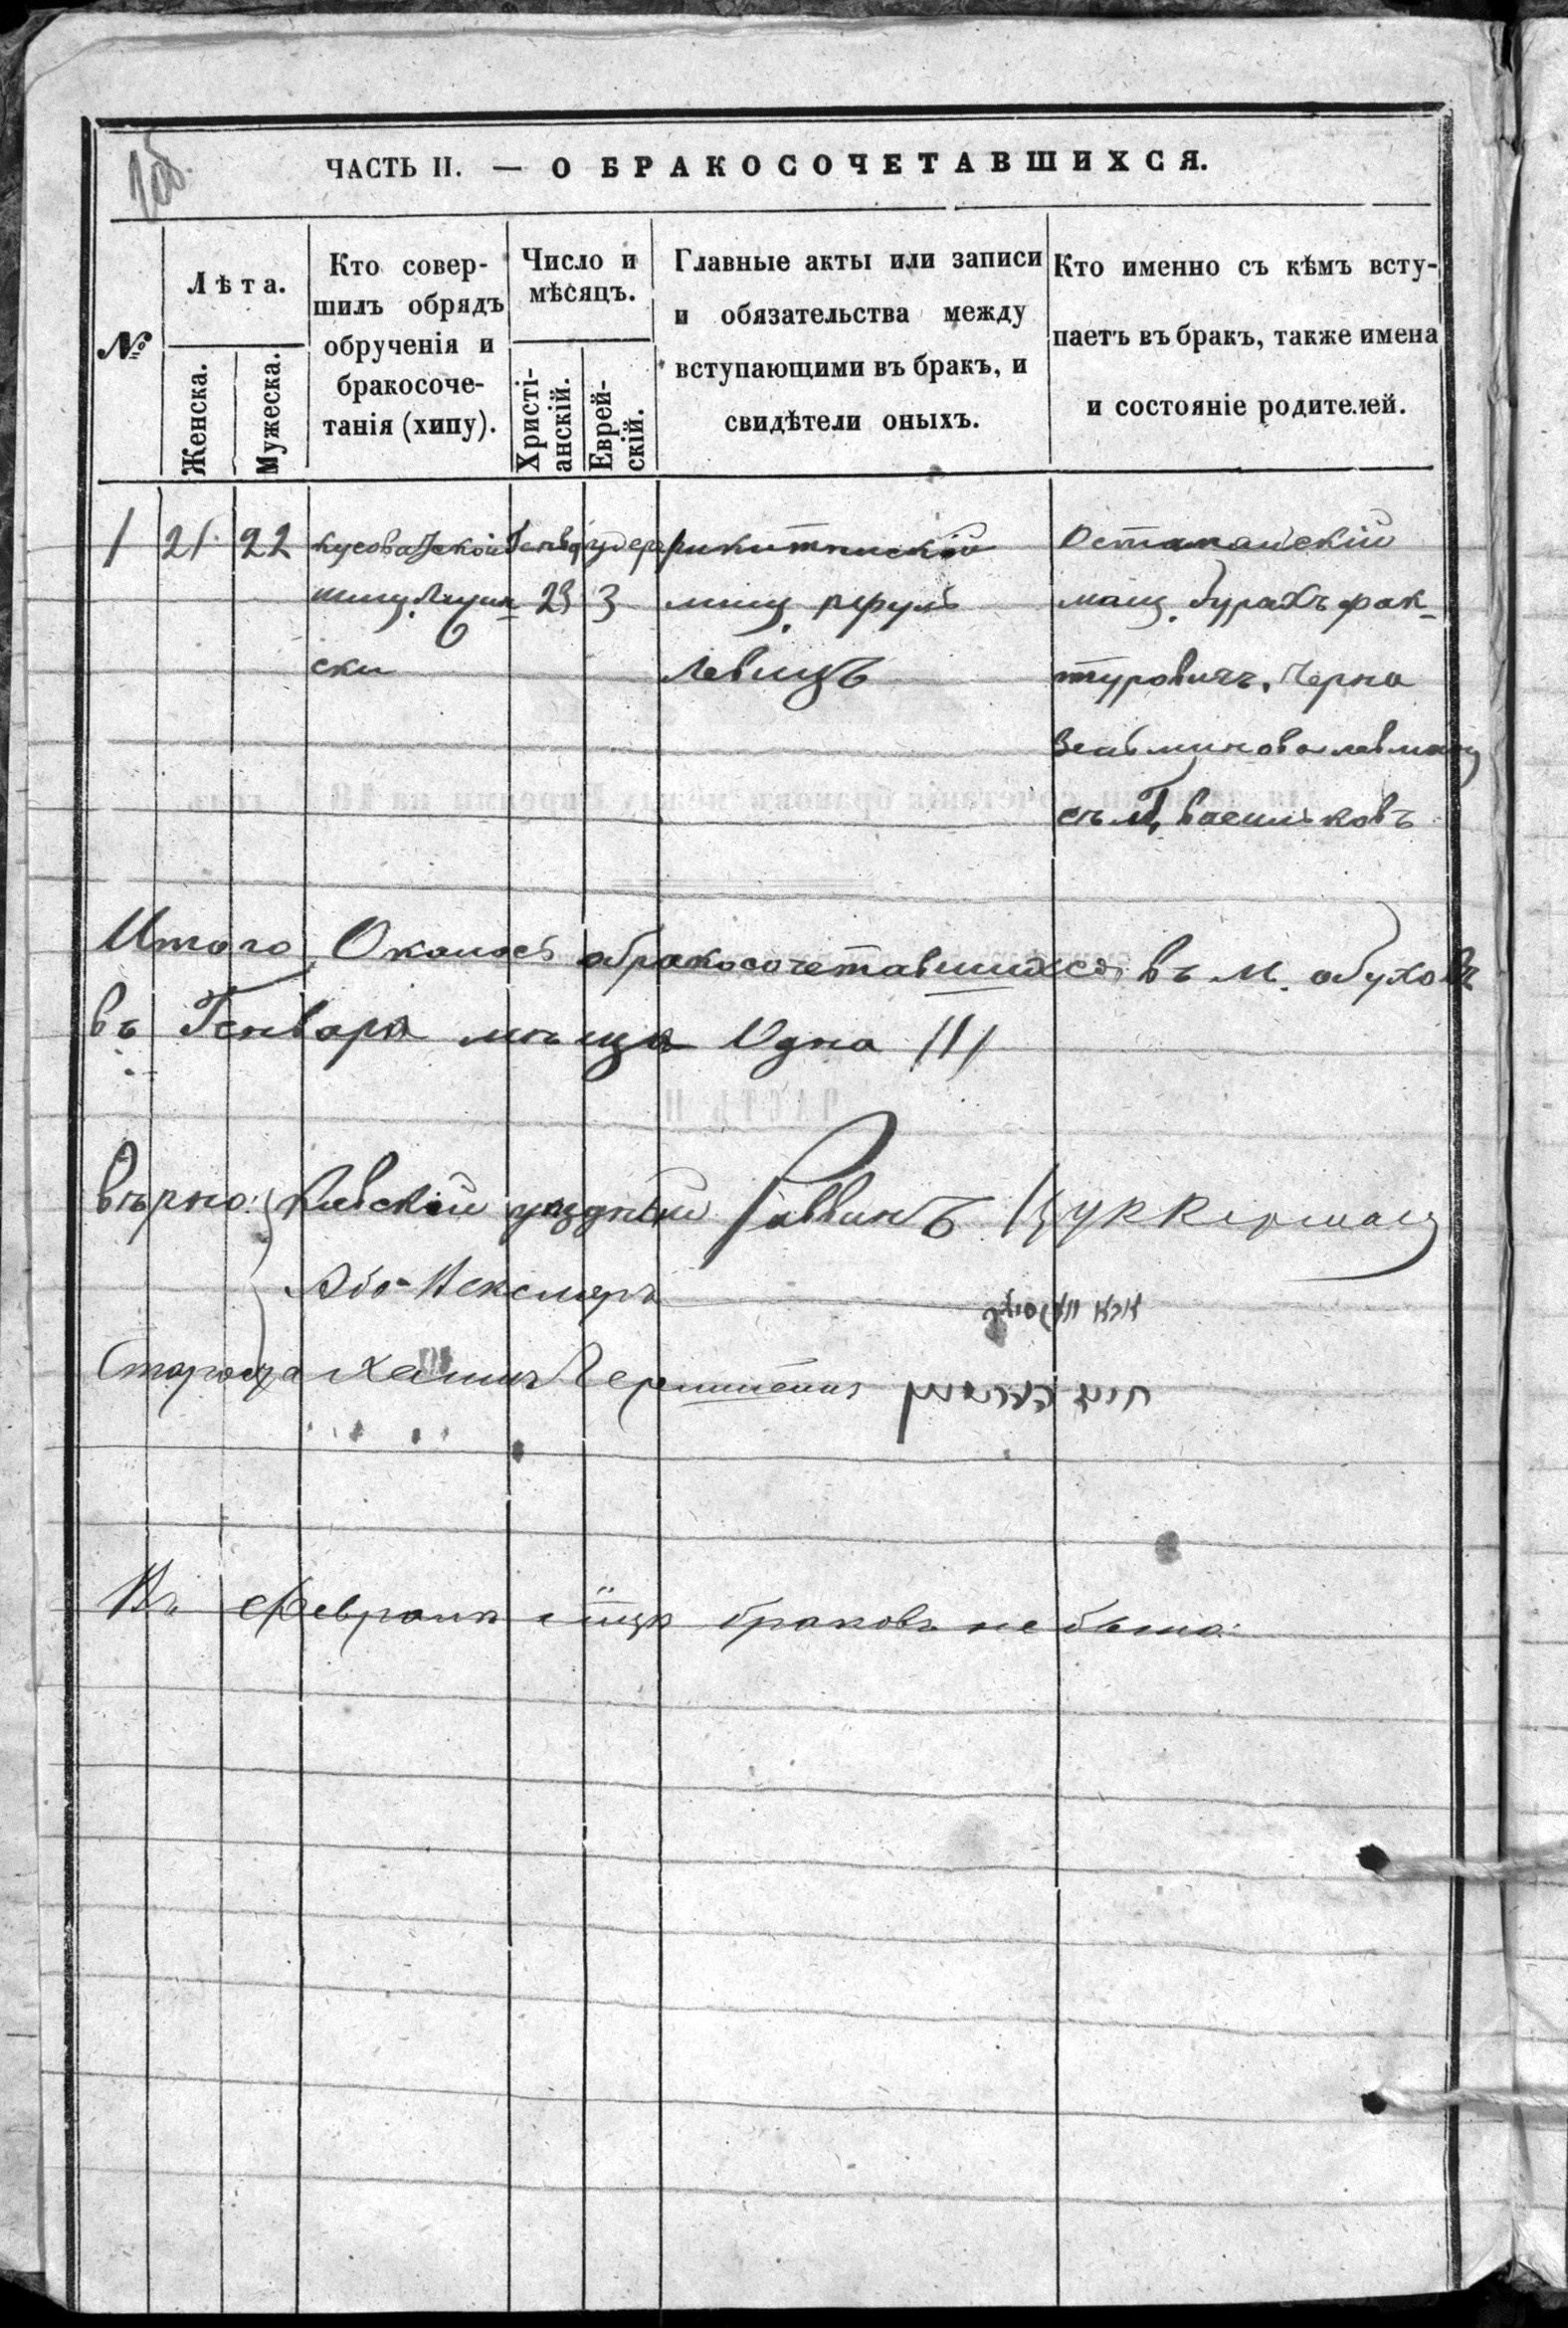 1об.
ЧАСТЬ II. — О БРАКОСОЧЕТАВШИХСЯ.
№
Лѣта.
Женска.
Мужеска.
Кто совер-
шилъ обрядъ
обрученія и
бракосоче-
танія (хипу).
Число и
мѣсяцъ.
Христі-
анскій.
Еврей-
скій.
Главные акты или записи
и обязательства между
вступающими въ бракъ, и
свидѣтели оныхъ.
Кто именно съ кѣмъ всту-
паетъ въ бракъ, также имена
и состояніе родителей.
1 21 22
23 3
мѣщ.
Левицъ
мѣщ. Бурахъ фак-
туровичъ. Черна
съ Г. Васильковъ
Итого Оказось обракосочетавшихся въ м. обухове
въ Генваря мѣсяца Одна /1/
Вѣрно: Киевскій уѣздный Раввинъ Цуккерманъ
Або-Векслеръ
אבא וועקסלער
Староста Хаимъ Геренштейнъ
חיים
Въ Февралѣ м̃цѣ браковъ не было.